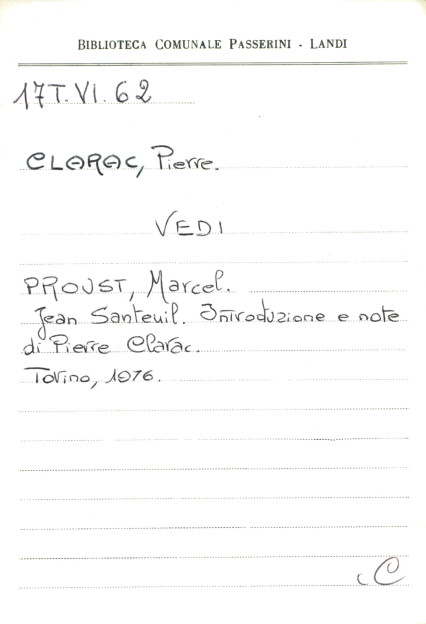 BIBLIOTECA COMUNALE PASSERINI - LANDI
17T.VI.62
CLARAC, Pierre.
VEDI
PROUST, Marcel.
Jean Santeuil. Introduzione e note
di Pierre Clarac.
Torino, 1976.
C